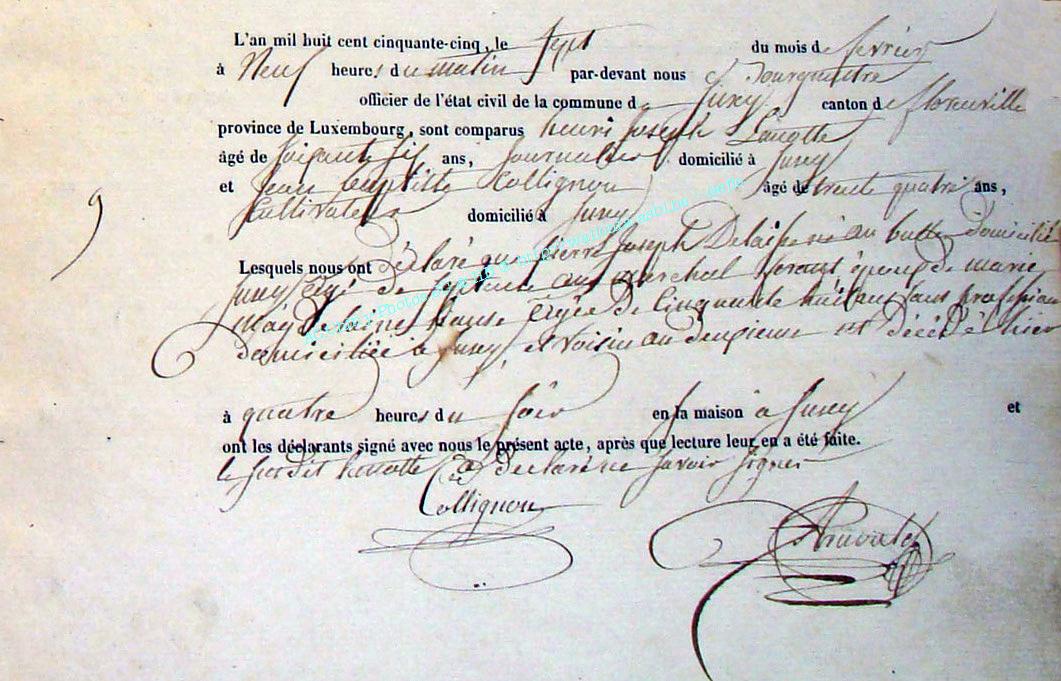 L'an mil huit cent cinquante-cinq, le sept du mois de fevrier
à Neuf heures du matin par-devant nous
officier de l'état civil de la commune de canton de florenville
province de Luxembourg, sont comparus henri Joseph Lanotte
âgé de Soixante six ans, Journalier domicilié à
et Jean baptiste Collignon âgé de trente quatre ans,
Cultivateur domicilié à
9
Lesquels nous ont déclaré que pierre Joseph domicilié
agé de Septante ans marchal ferant époux de marie
magdelaine agée de Cinquante huit ans sans profession
domiciliée à et voisin au deuxieme est décédé hier
à quatre heures du Soir en sa maison à et
ont les déclarants signé avec nous le présent acte, après que lecture leur en a été faite.
le susdit Lanotte a declaré ne savoir signer
Collignon